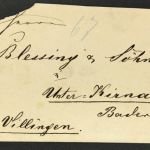 Herrn
67
Blessing & Söhn
Unter-Kirna
Baden
Villingen.